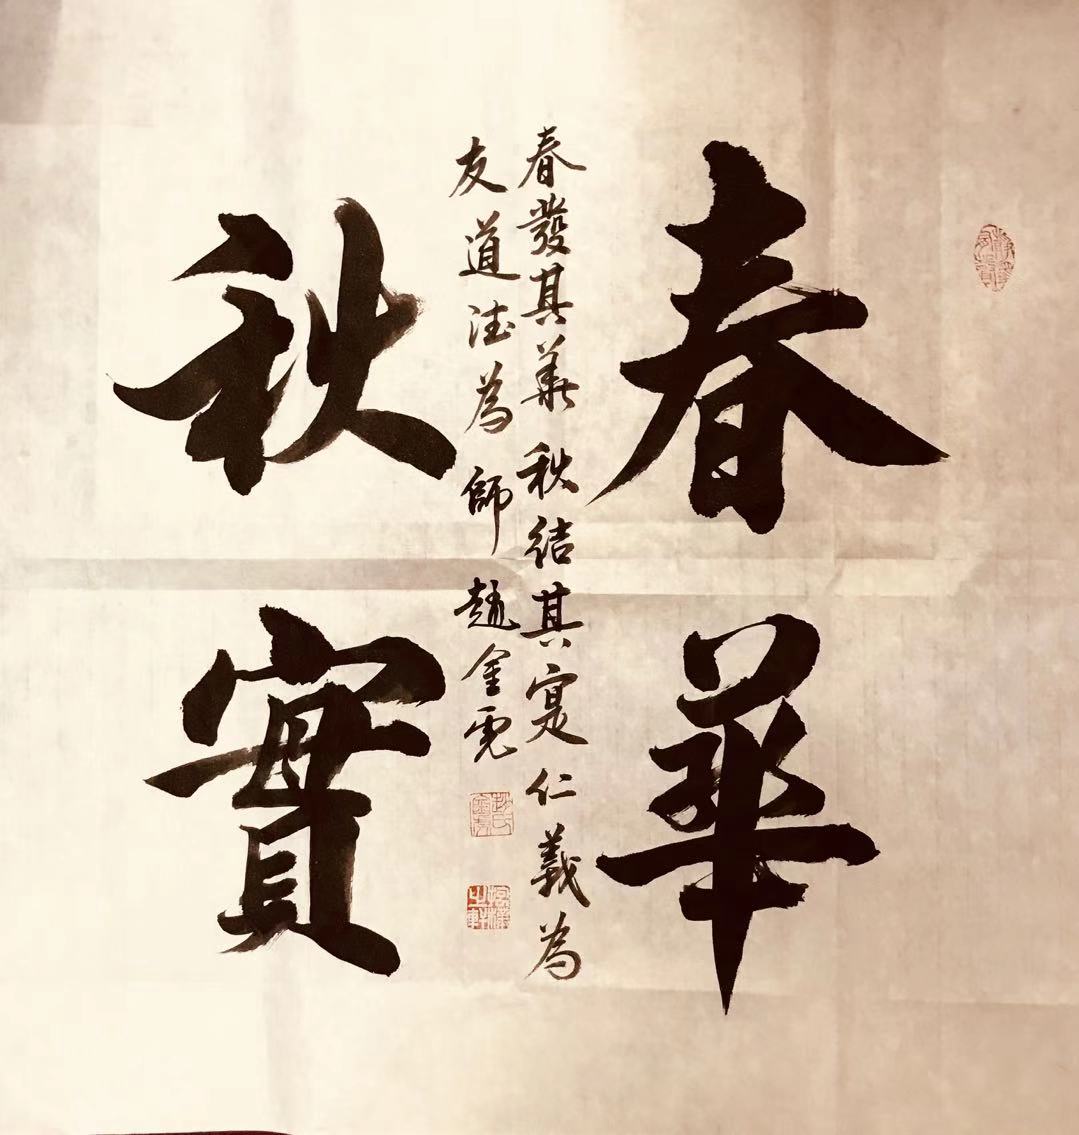 春華
春發其華秋結其寔仁義為
友道德為師趙金
秋實